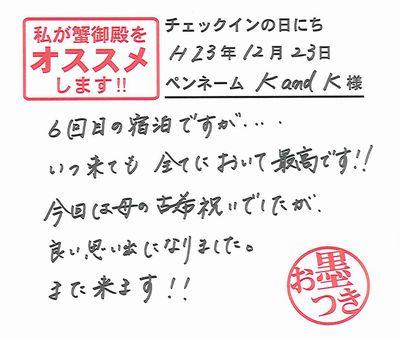 私が蟹御殿を
オススメ
します!!
チェックインの日にち
H23年12月23日
ペンネーム K and K 様
6回目の宿泊ですが、...
いつ来ても 全てにおいて最高です!!
今回は母の古希祝いでしたが、
良い思い出になりました。
また来ます!!
お墨つき